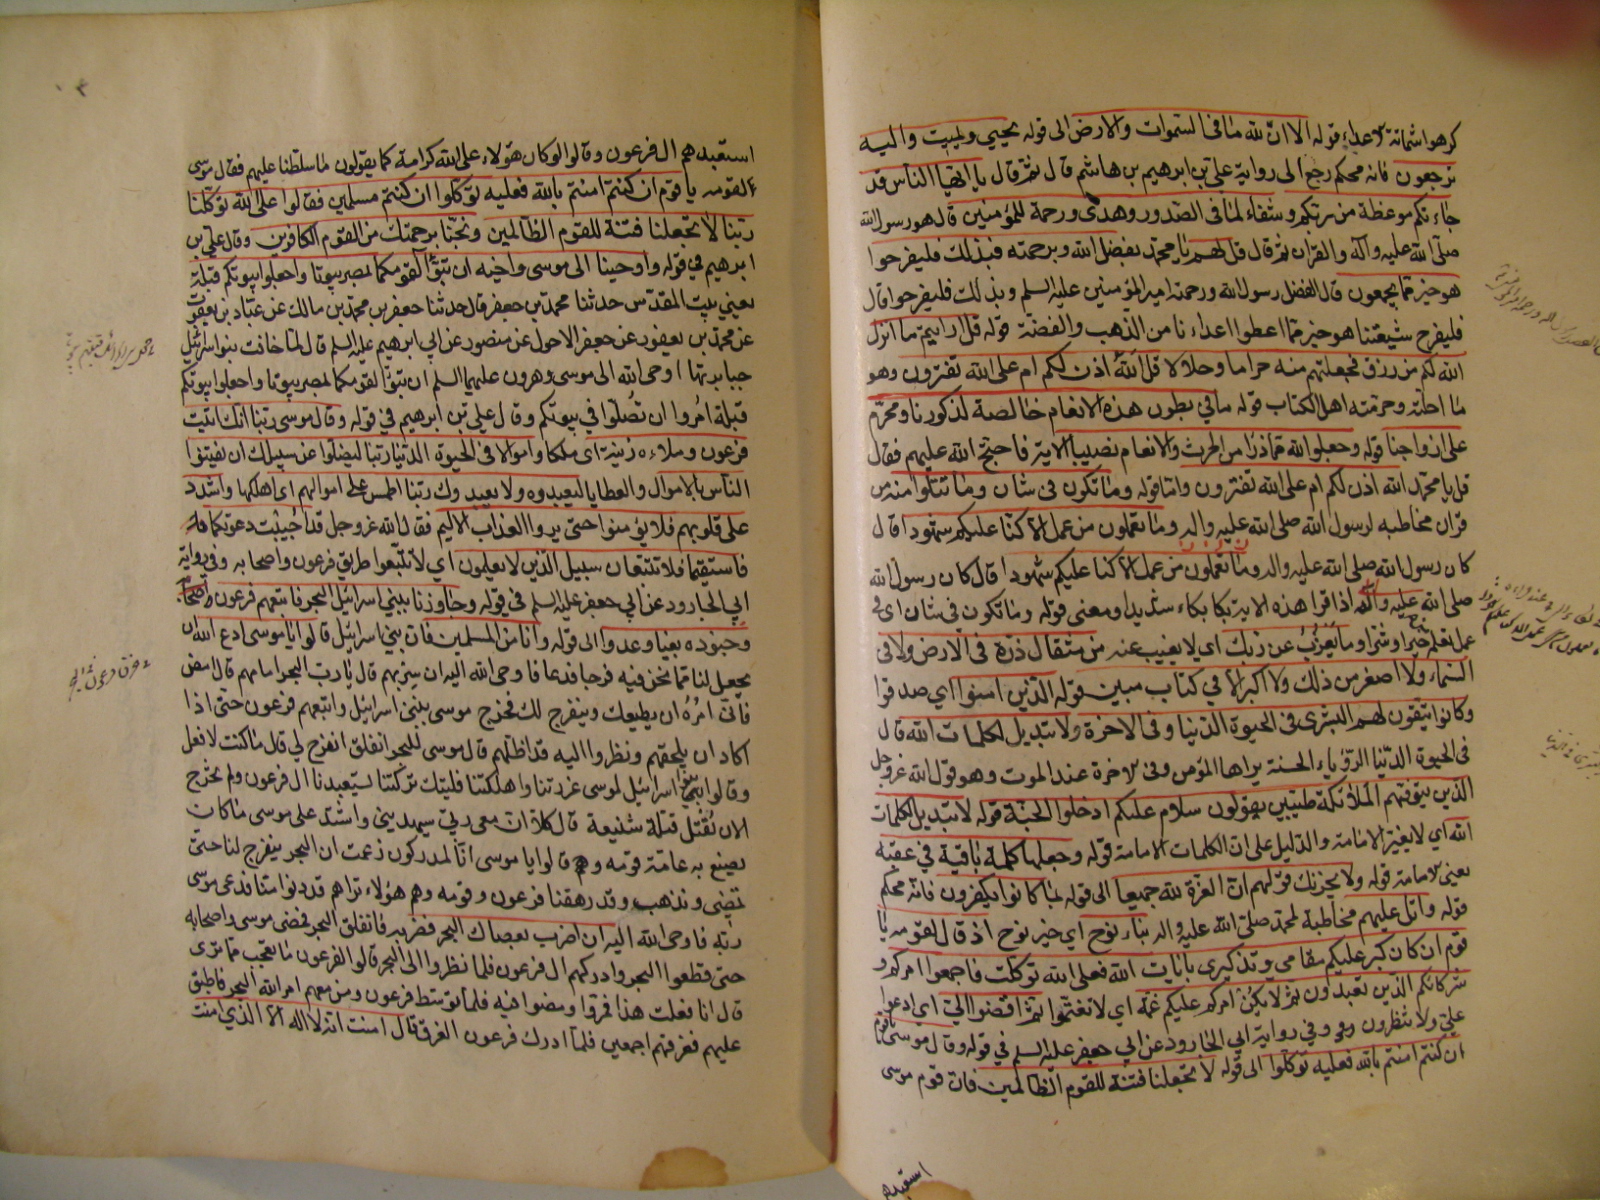 كرهوا شماتة الاعداء قوله الا ان لله ما في السموات والارض الى قوله يحيي ويميت واليه
ترجعون فانه محكم رجع الى رواية علي بن ابرهيم بن هاشم قال ثم قال يا ايها الناس قد
جاءتكم موعظة من ربكم وشفاء لما في الصدور وهدى ورحمة للمؤمنين قال هو رسول الله
صلى الله عليه وآله والقران ثم قال قل لهم يا محمد بفضل الله وبرحمته فبذلك فليفرحوا
هو خير مما يجمعون قال الفضل رسول الله ورحمته امير المؤمنين عليه السلم وبذلك فليفرحوا قال
فليفرح شيعتنا هو خير مما اعطوا اعداءنا من الذهب والفضة قوله قل ارايتم ما انزل
الله لكم من رزق فجعلتم منه حراما وحلالا قل آلله اذن لكم ام على الله تفترون وهو
ما احلته وحرمته اهل الكتاب قوله ما في بطون هذه الانعام خالصة لذكورنا ومحرم
على ازواجنا قوله وجعلوا لله مما ذرا من الحرث والانعام نصيبا الاية فاحتج الله عليهم فقال
قل يا محمد الله اذن لكم ام على الله تفترون واما قوله وما تكون في شان وما تتلوا منه من
قران مخاطبه لرسول الله صلى الله عليه واله وما تعملون من عمل الا كنا عليكم شهودا قال
كان رسول الله صلى الله عليه واله وما تعملون من عمل الا كنا عليكم شهودا قال كان رسول الله
صلى الله عليه وآله اذا قرا هذه الاية بكا بكاء شديدا ومعنى قوله وما تكون في شان اي في
عمل نعمله خيرا وشرا وما يعزب عن ربك اي لا يغيب عنه من مثقال ذرة في الارض ولا في
السماء ولا اصغر من ذلك ولا اكبر الا في كتاب مبين قوله الذين امنوا اي صدقوا
وكانوا يتقون لهم البشرى في الحيوة الدنيا وفي الاخرة ولا تبديل لكلمات الله قال
في الحيوة الدنيا الرؤياء الحسنة يراها المؤمن وفي الاخرة عند الموت وهو قول الله عز وجل
الذين يتوفهم الملائكة طيبين يقولون سلام عليكم ادخلوا الجنة قوله لا تبديل لكلمات
الله اي لا يغير الامامة والدليل على ان الكلمات الامامة قوله وجعلها كلمة باقية في عقبه
يعني لامامة قوله ولا يحزنك قولهم ان العزة لله جميعا الى قوله بما كانوا يكفرون فانه محكم
قوله واتل عليهم مخاطبة لمحمد صلى الله عليه واله نباء نوح اي خبر نوح اذ قال لقومه يا
قوم ان كان كبر عليكم مقامي وتذكيري بايات الله فعلى الله توكلت فاجمعوا امركم و
شركائكم الذين تعبدون ثم لا يكن امركم عليكم غمة اي لا تغتموا ثم اقضوا الي اي ادعوا
علي ولا تنظرون وفي رواية ابي الجارود عن ابي جعفر عليه السلم في قوله وقال موسى يا قوم
ان كنتم امنتم بالله فعليه توكلوا الى قوله لا تجعلنا فتنة للقوم الظالمين فان قوم موسى
استعبدهم
استعبدهم ال فرعون وقالوا لو كان هؤلاء على الله كرامة كما يقولون ما سلطنا عليهم فقال موسى
لقومه يا قوم ان كنتم امنتم بالله فعليه توكلوا ان كنتم مسلمين فقالوا على الله توكلنا
ربنا لا تجعلنا فتنة للقوم الظالمين ونجنا برحمتك من القوم الكافرين وقال علي بن
ابرهيم في قوله واوحينا الى موسى واخيه ان تبوّا لقومكما بمصر بيوتا واجعلوا بيوتكم قبلة
يعني بيت المقدس حدثنا محمد بن جعفر قال حدثنا جعفر بن محمد بن مالك عن عباد بن يعقوب
عن محمد بن يعفور عن جعفر الاحول عن منصور عن ابي ابرهيم عليه السلم قال لما خافت بنو اسرائيل
جبابرتها اوحى الله الى موسى وهرون عليهما السلم ان تبوّا لقومكما بمصر بيوتا واجعلوا بيوتكم
قبلة امروا ان تصلوا في بيوتكم وقال علي بن ابرهيم في قوله وقال موسى ربنا انك اتيت
فرعون وملاءه زينة اي ملكا واموالا في الحيوة الدنيا ربنا ليضلوا عن سبيلك ان يفتنوا
الناس بالاموال والعطايا ليعبدوه ولا يعبدوك ربنا اطمس على اموالهم اي اهلكها واشدد
على قلوبهم فلا يؤمنوا حتى يروا العذاب الاليم فقال الله عز وجل قد اجيبت دعوتكما
فاستقيما فلا تتبعان سبيل الذين لا يعلمون اي لا تتبعوا طريق فرعون واصحابه وفي رواية
ابي الجارود عن ابي جعفر عليه السلم في قوله وجاوزنا ببني اسرائيل البحر فاتبعهم فرعون
وجنوده بغيا وعدوا الى قوله وانا من المسلمين فان بني اسرائيل قالوا يا موسى ادع الله ان
يجعل لنا مما نحن فيه فرجا فدعا فاوحى الله اليه ان سر بهم قال يا رب البحر امامهم قال امض
فاني امره ان يطيعك وينفرج لك فخرج موسى ببني اسرائيل واتبعهم فرعون حتى اذا
اكاد ان يلحقهم ونظروا اليه قد اظلهم قال موسى للبحر انفلق انفرج لي قال ما كنت لافعل
وقالوا بني اسرائيل لموسى غررتنا واهلكتنا فليتك تركتنا يستعبدنا ال فرعون ولم نخرج
الان نقتل قتلة شنيعة قال كلا ان معي ربي سيهديني واشتد على موسى ما كان
يصنع به عامة قومه وهم قالوا يا موسى انا لمدركون زعمت ان البحر ينفرج لنا حتى
نمضي ونذهب وقد رهقنا فرعون وقومه وهم هؤلاء تراهم قد دنوا منا فدعى موسى
ربه فاوحى الله اليه ان اضرب بعصاك البحر فضربه فانفلق البحر فمضى موسى واصحابه
حتى قطعوا البحر وادركهم ال فرعون فلما نظروا الى البحر قالوا لفرعون ما تعجب مما ترى
قال انا فعلت هذا فمروا ومضوا فيه فلما توسط فرعون ومن معهم امر الله البحر فاطبق
عليهم فغرقهم اجمعين فلما ادرك فرعون الغرق قال امنت انه لا اله الا الذي امنت